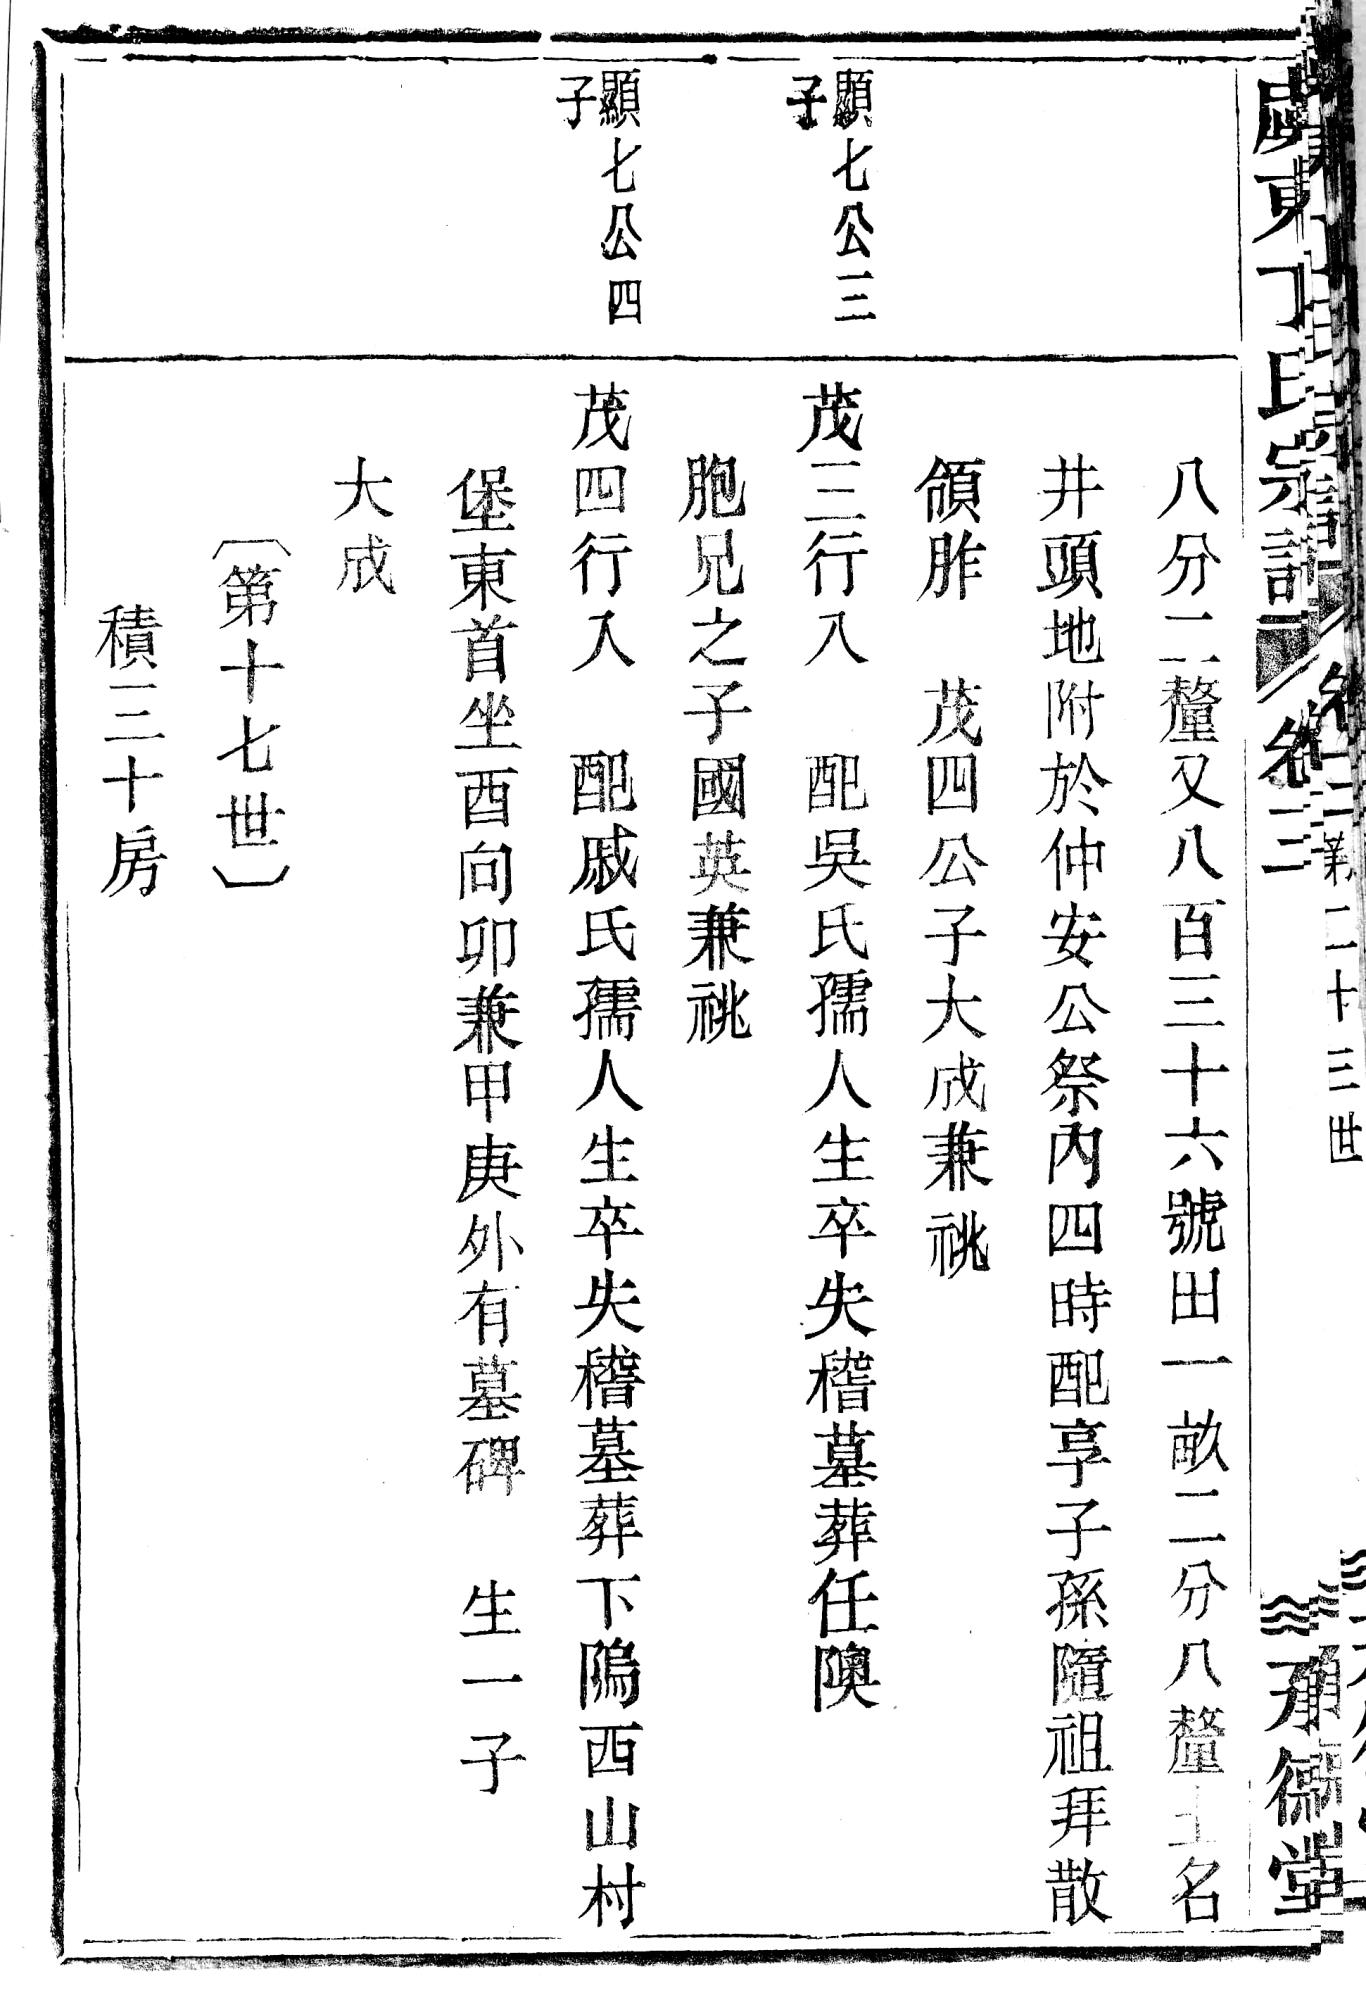 東丁氏宗譜 卷三
八分二釐又八百三十六號田一畝二分八釐土名
井頭地附於仲安公祭內四時配享子孫隨祖拜散
領胙 茂四公子大成兼祧
顯七公三
子
茂三行八 配吳氏孺人生卒失稽墓葬任隩
胞兄之子國英兼祧
顯七公四
子
茂四行入 配戚氏孺人生卒失稽墓葬下隝西山村
堡東首坐酉向卯兼甲庚外有墓碑 生一子
大成
〔第十七世〕
積三十房
二十三世
承德堂